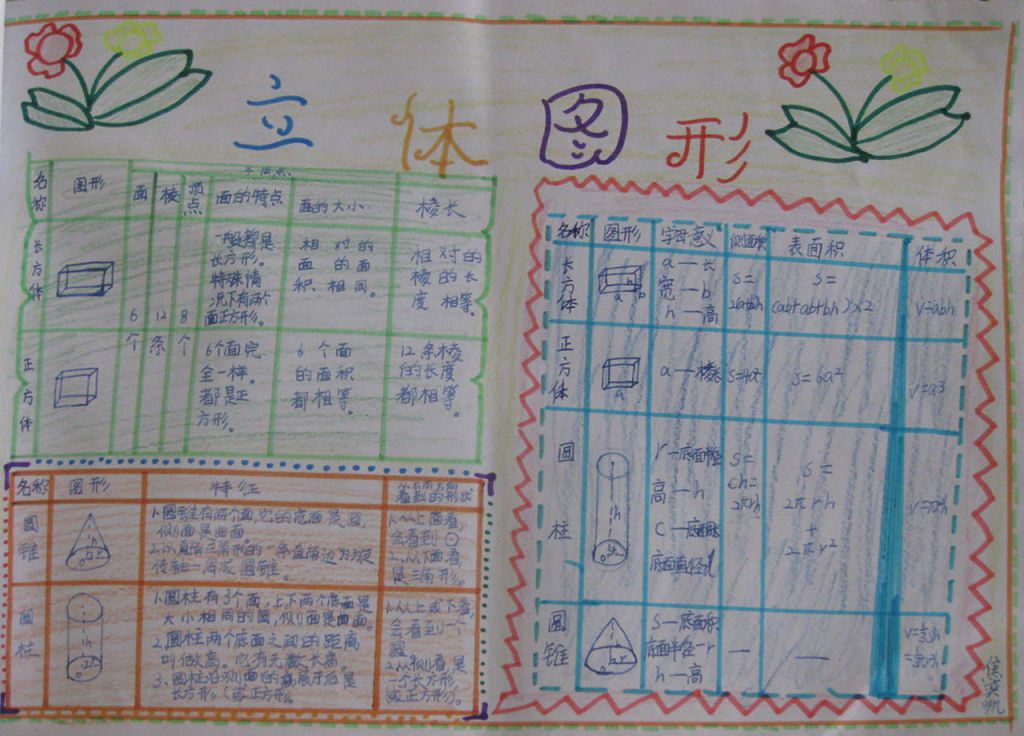 立体图形
名称 图形 面 棱 顶点 面的特点 面的大小 棱长
长方体
6个 12条 8个
一般都是
长方形。
特殊情
况下有两个
面正方形。
相对的
面的面
积相同。
相对的
棱的长
度相等。
正方体
6个面完
全一样。
都是正
方形。
6个面
的面积
都相等。
12条棱
的长度
都相等。
名称 图形 特征 看到的形状
圆锥
h
r
1.圆锥有两个面,它的底面是圆,
侧面是曲面
2.以直角三角形的一条直角边为
转轴一周成圆锥。
1.从上面看,
会看到⊙
2.从下面看
是三角形。
圆柱
h
1.圆柱有3个面,上下两个底面是
大小相同的圆,侧面是曲面。
2.圆柱两个底面之间的距离
叫做高。它有无数长高。
3.圆柱沿侧面的高展开后是
长方形(或正方形。
1.从上或下看,
会看到一个
圆
2.从侧看,是
一个长方形
或正方形)。
名称 图形 字母意义 侧面积 表面积 体积
长方体
a b
a—长
宽—b
h—高
S=
S=
(ab+ab+bh)×2
V=abh
正方体
a
a—棱长
S=4a²
S=6a²
V=a³
圆柱
h
r—底面半径
高—h
C—底面周长
底面直径
S=
ch=
2πrh
S=
2πrh
+
2πr²
圆锥
h
r
S—底面积
底面半径—r
h—高
—
—